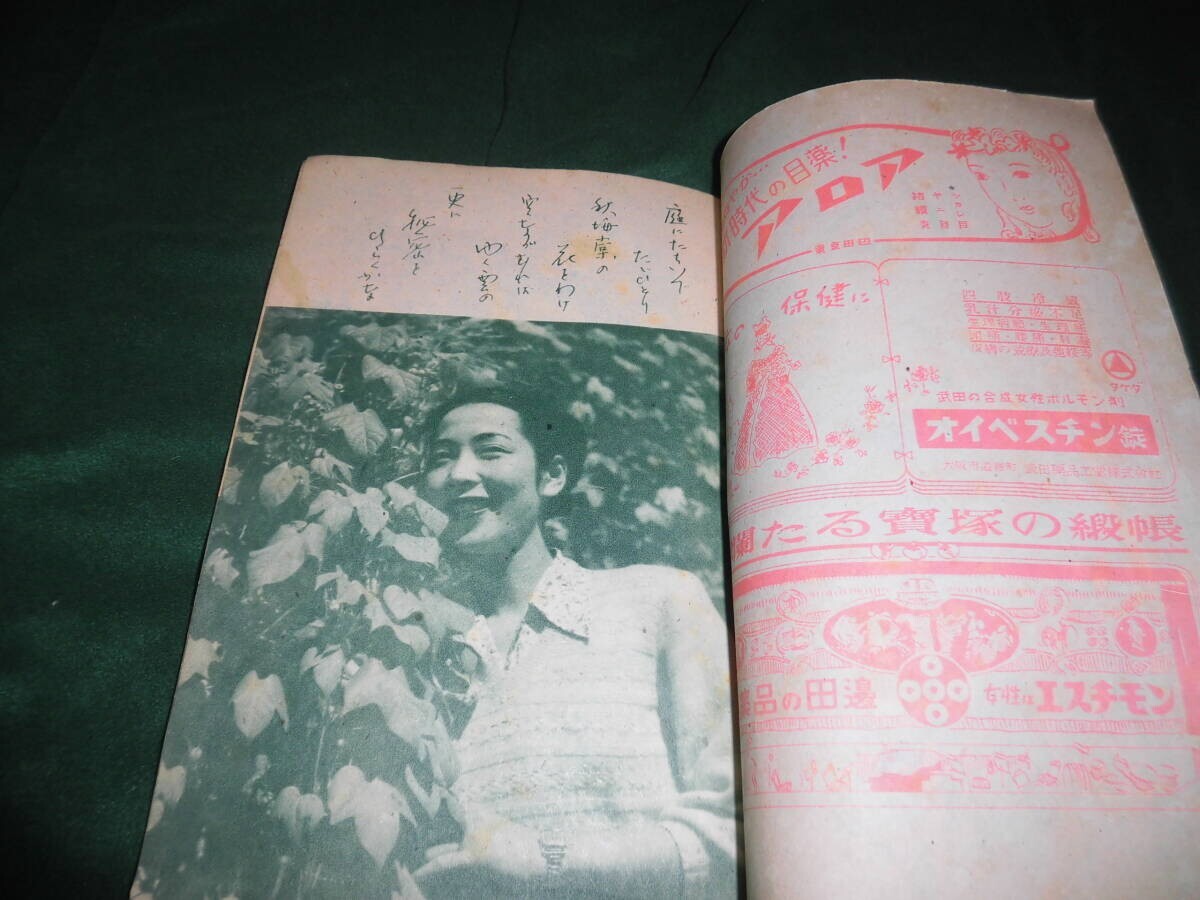 庭にたちいで
たゞひとり
秋海棠の
花をわけ
空ながむれば
ゆく雲の
更に
秘密を
ひらくかな
時代の目薬!
アロア
保健に
四肢冷感
タケダ
武田の合成女性ホルモン剤
オイベスチン錠
大阪市道修町 武田薬品工業株式会社
爛たる寶塚の緞帳
薬品の田邊
女性はエスチモン